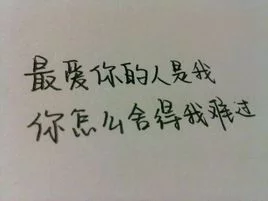 最爱你的人是我
你怎么舍得我难过